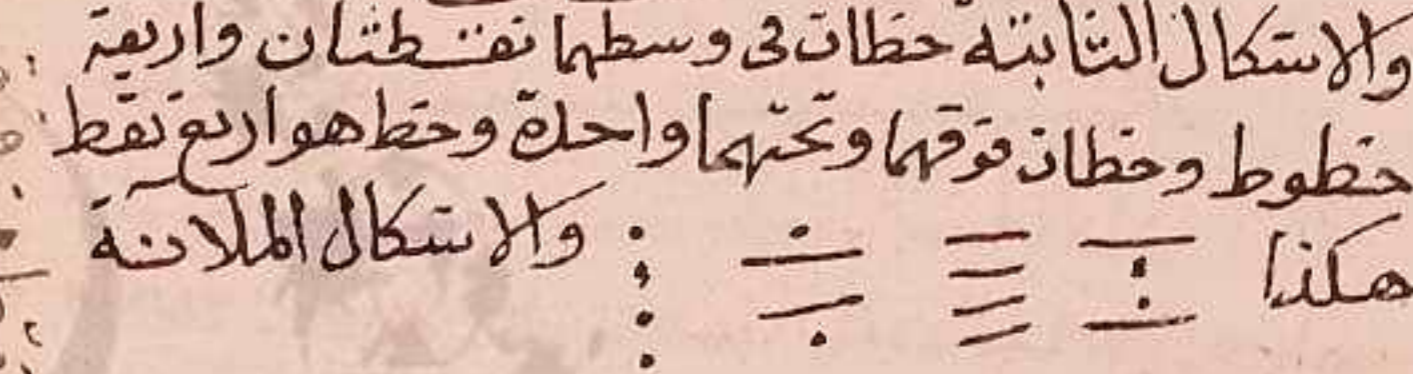 والاشكال الثابتة خطان فى وسطهما نقطتان واربعة
خطوط وخطان فوقهما وتحتهما واحدة وخط هو اربع نقط
هكذا والاشكال الملانة